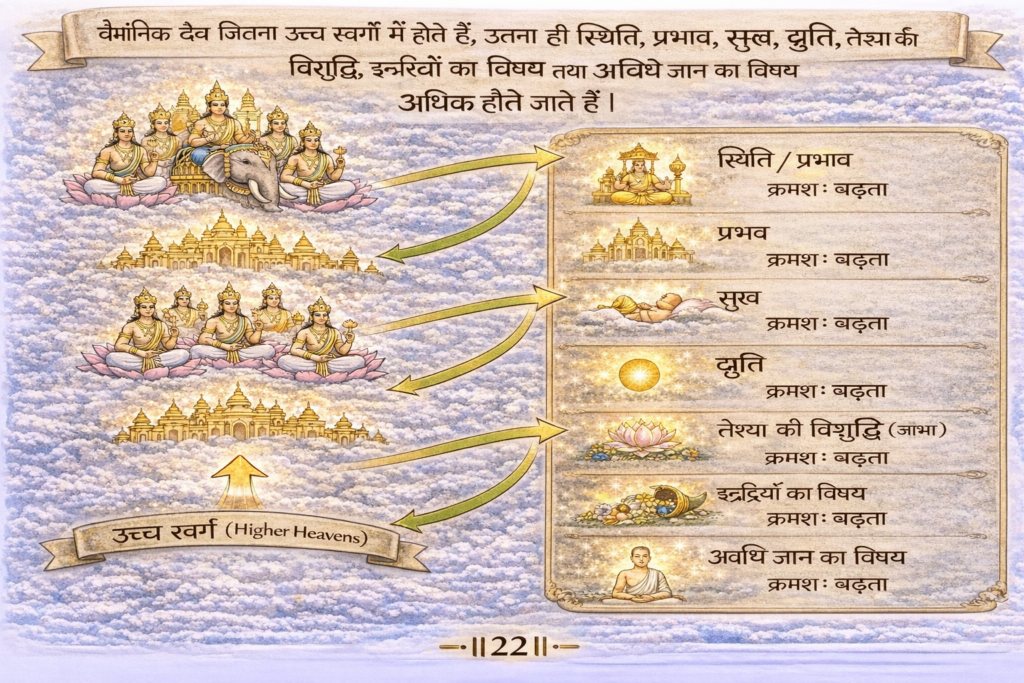 वैमांनिक दैव जितना उच्च स्वर्गो में होते हैं, उतना ही स्थिति, प्रभाव, सुख, द्युति, तेश्या की
विशुद्धि, का विषय तया अविधे जान का विषय
अधिक हौते जाते हैं |
स्यिति / प्रभाव
क्रमश: बढ़ता
प्रभव
क्रमश: बढ़ता
सुख
क्रमश: बढ़ता
द्युति
क्रमश: बढ़ता
तेश्या की विशुद्धि (जाभा)
क्रमश: बढ़ता
का विषय
क्रमश: बढ़ता
अवधि जान का विषय
क्रमश: बढ़ता
उच्च स्वर्ग (Higher Heavens)
॥22॥